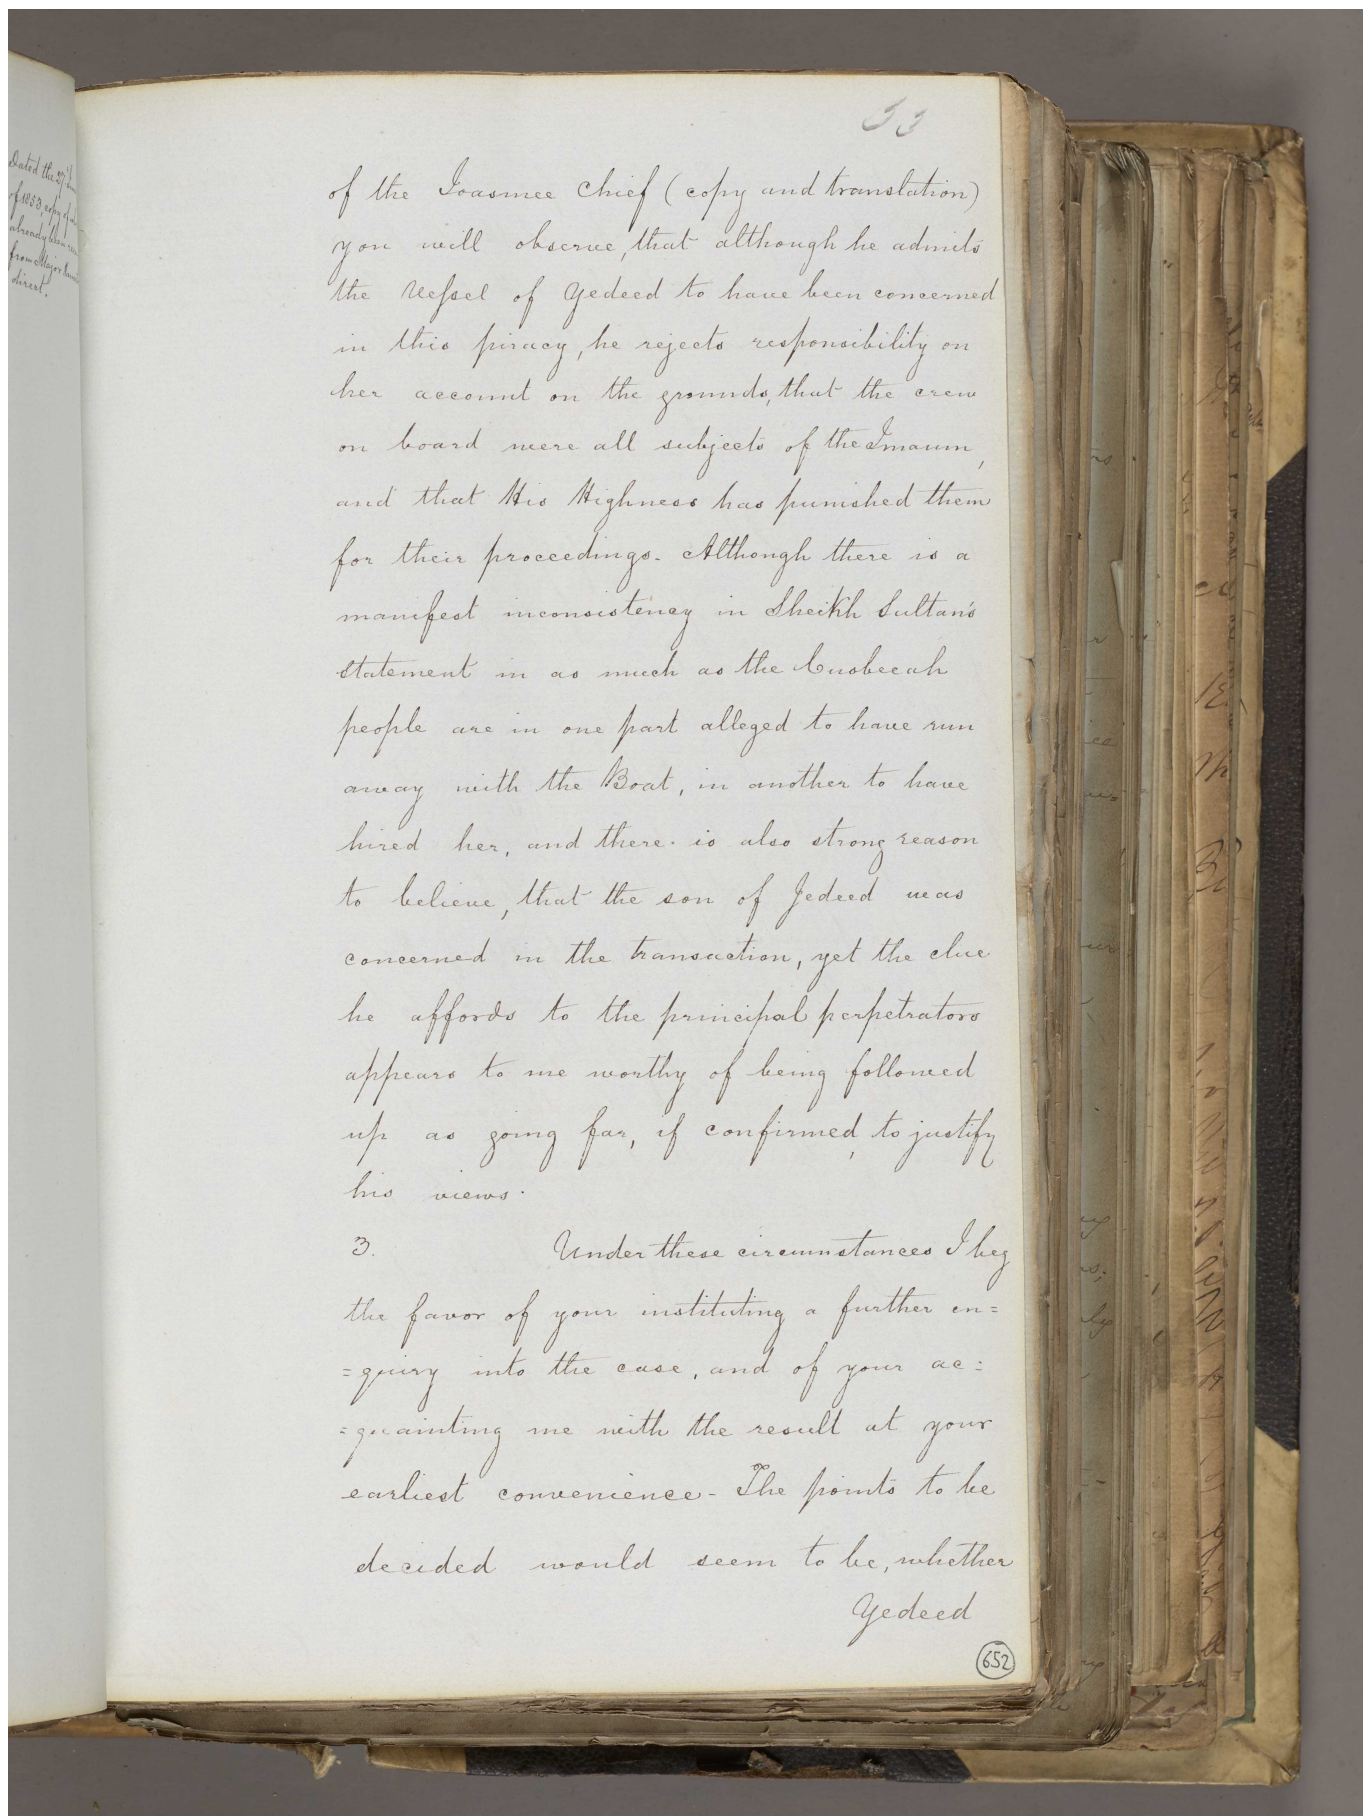 33
Dated the 27
of 1853, copy of
already been
from Major
direct.
of the Joasmee Chief (copy and translation)
you will observe, that although he admits
the Vessel of Yedeed to have been concerned
in this piracy, he rejects responsibility on
her account on the grounds, that the crew
on board were all subjects of the Imaum,
and that His Highness has punished them
for their proceedings. Although there is a
manifest inconsistency in Sheikh Sultan's
statement in as much as the Cusbeeah
people are in one part alleged to have run
away with the Boat, in another to have
hired her, and there is also strong reason
to believe, that the son of Jedeed was
concerned in the transaction, yet the clue
he affords to the principal perpetrators
appears to me worthy of being followed
up as going far, if confirmed, to justify
his views.
3. Under these circumstances I beg
the favor of your instituting a further en=
=quiry into the case, and of your ac=
=quainting me with the result at your
earliest convenience - The points to be
decided would seem to be, whether
Yedeed
652